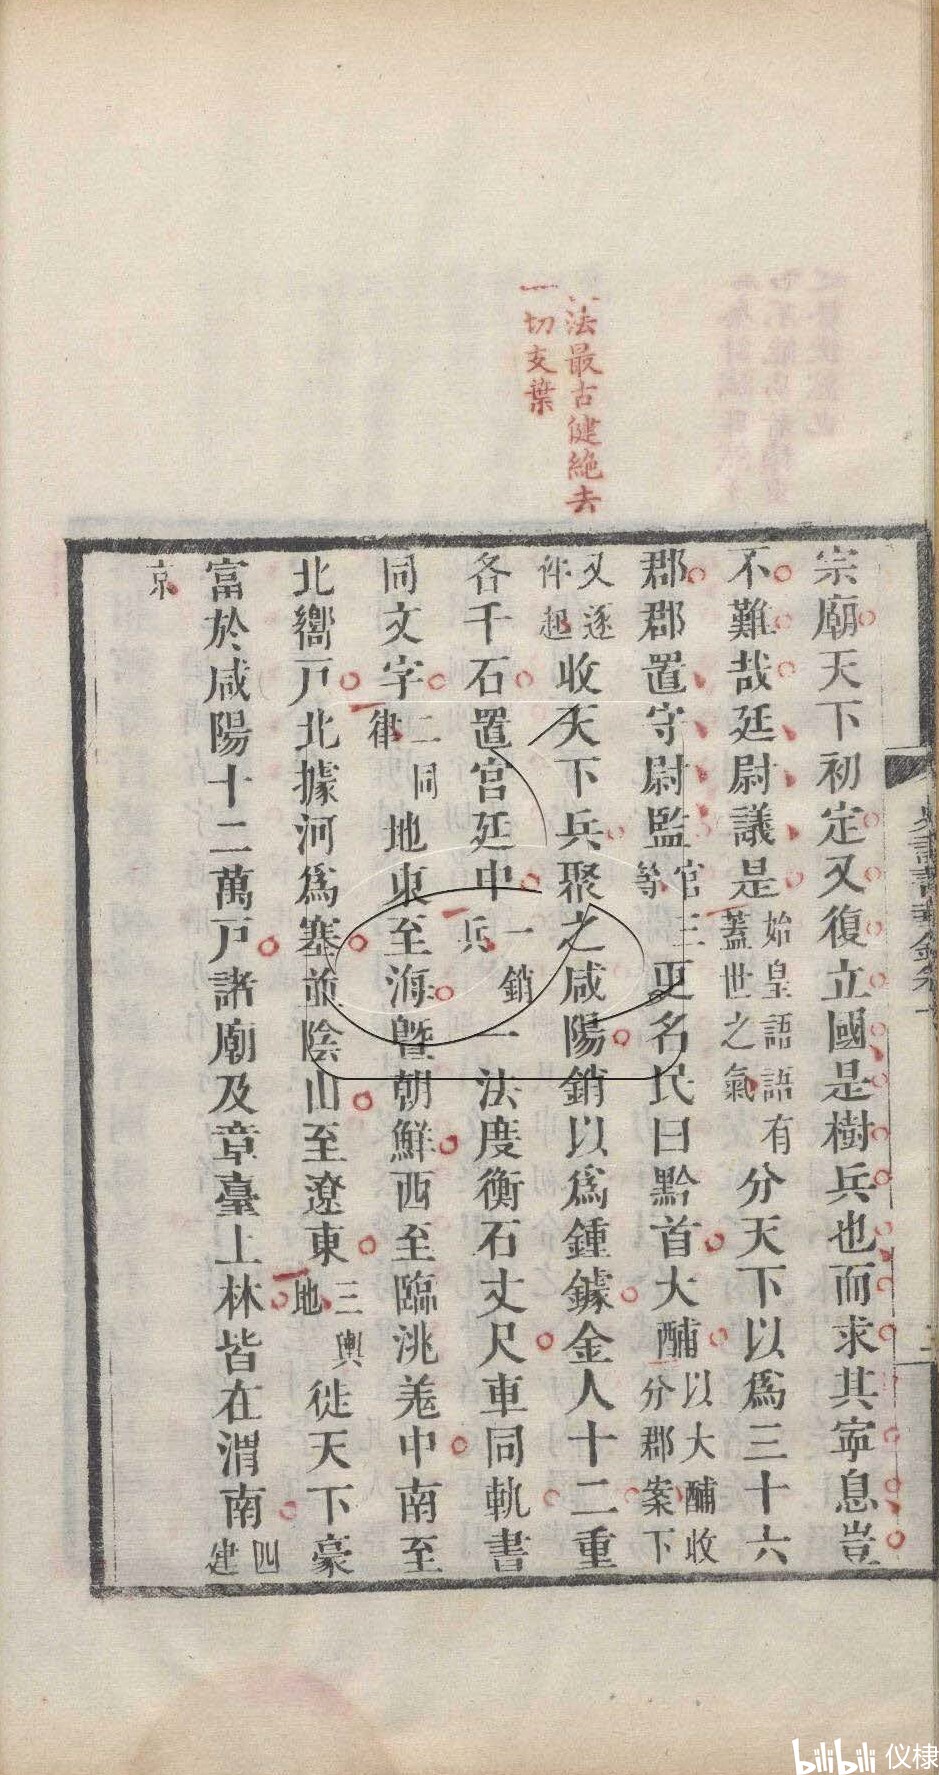 法最古健絶去
一切支葉
宗廟天下初定又復立國是樹兵也而求其寧息豈
不難哉廷尉議是始皇語語有蓋世之氣分天下以為三十六
郡郡置守尉監三官等更名民曰黔首大酺以大酺收分郡案下
又逐件起收天下兵聚之咸陽銷以為鍾鐻金人十二重
各千石置宮廷中一銷兵一法度衡石丈尺車同軌書
同文字二同律地東至海暨朝鮮西至臨洮羌中南至
北嚮戸北據河爲塞並陰山至遼東三輿地徙天下豪
富於咸陽十二萬戸諸廟及章臺上林皆在渭南四建
京
bilibili 仪棣